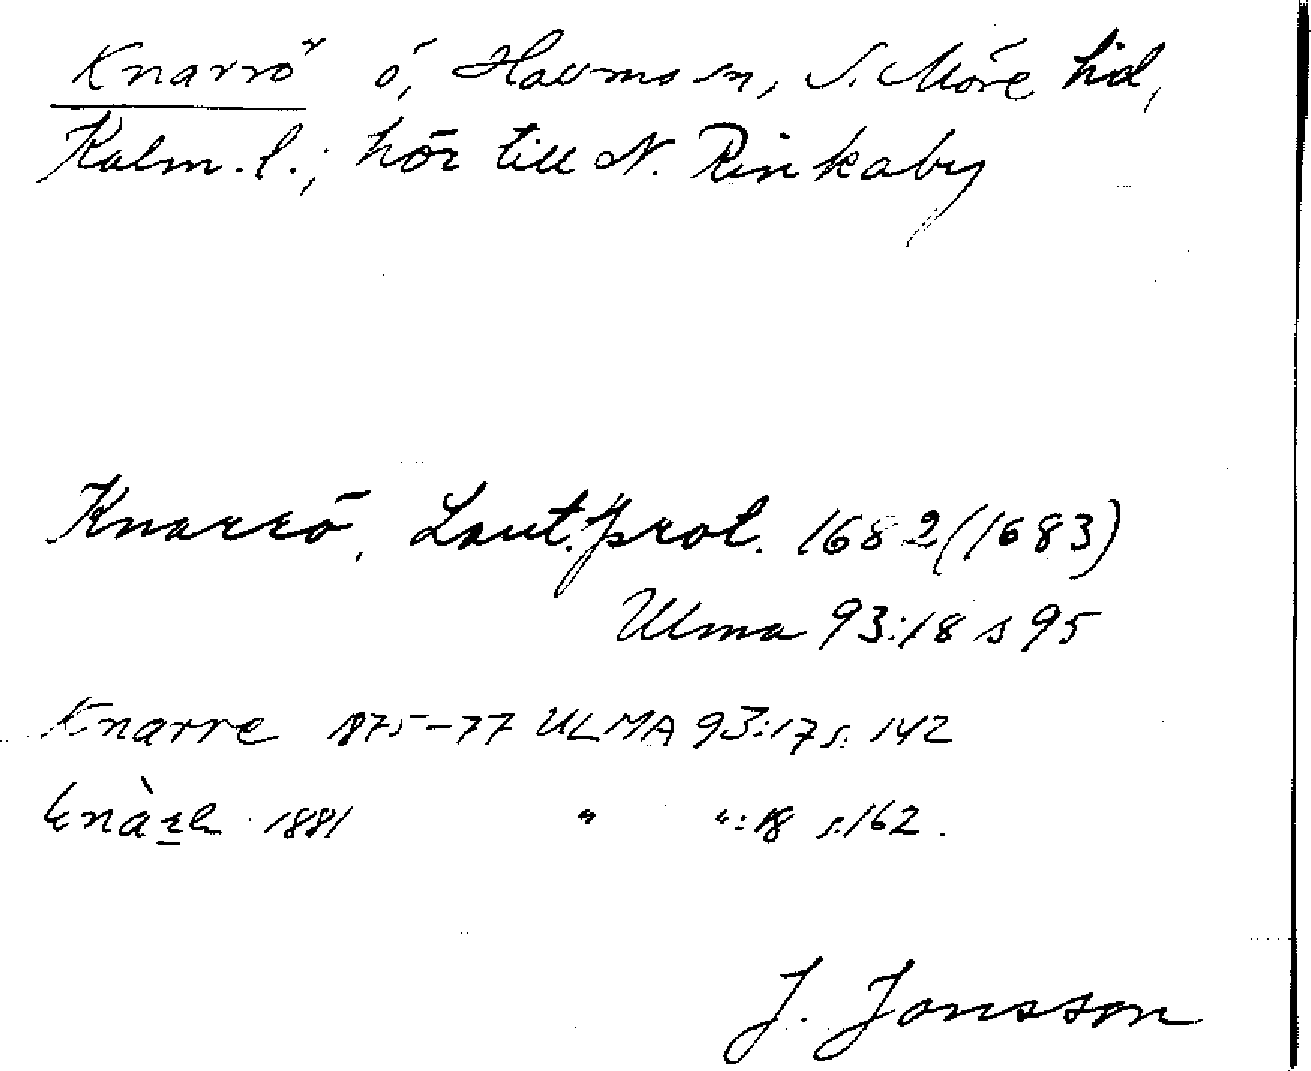 Knarrö ö, Halmsn, S. Möre hd,
Kalm. l.; hör till N. Rinkaby
Knarrö, Laut. prot. 1682 (1683)
Ulma 93:18 s 95
Knarre 1875-77 ULMA 93:17 s. 142
1881 " ":18 s. 162.
J. Jonsson